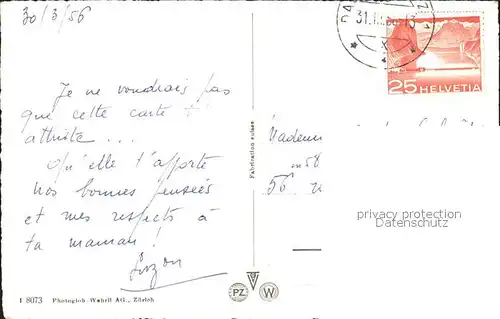 30/3/56
Je ne voudrais pas
que cette carte t'
attriste ...
Qu'elle t'apporte
nos bonnes pensées
et mes respects à
ta maman !
I 8073 Photogloh-Wehrli AG., Zürich
Fabrication suisse
PZ W
31.III.
25 HELVETIA
56
privacy protection
Datenschutz